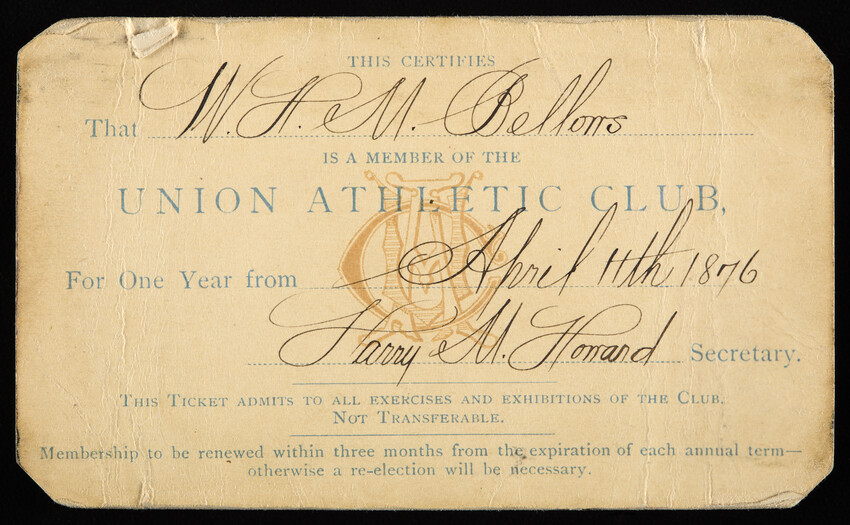 THIS CERTIFIES
That W. H. M. Bellows
IS A MEMBER OF THE
UNION ATHLETIC CLUB,
For One Year from April 11th 1876
Harry M. Howard Secretary.
THIS TICKET ADMITS TO ALL EXERCISES AND EXHIBITIONS OF THE CLUB.
NOT TRANSFERABLE.
Membership to be renewed within three months from the expiration of each annual term—
otherwise a re-election will be necessary.